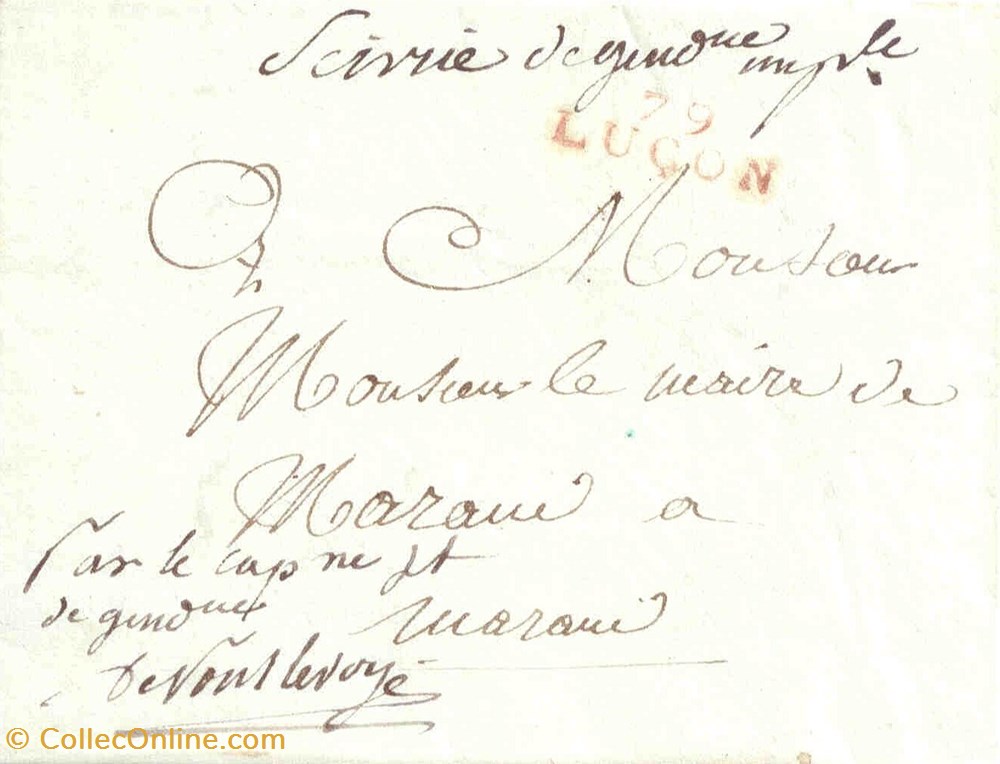 Service de gend^rie imp^le
79
LUÇON
A Monsieur
Monsieur le maire de
Marans a
Marans
Par le cap^ne
de gend^rie
© CollecOnline.com